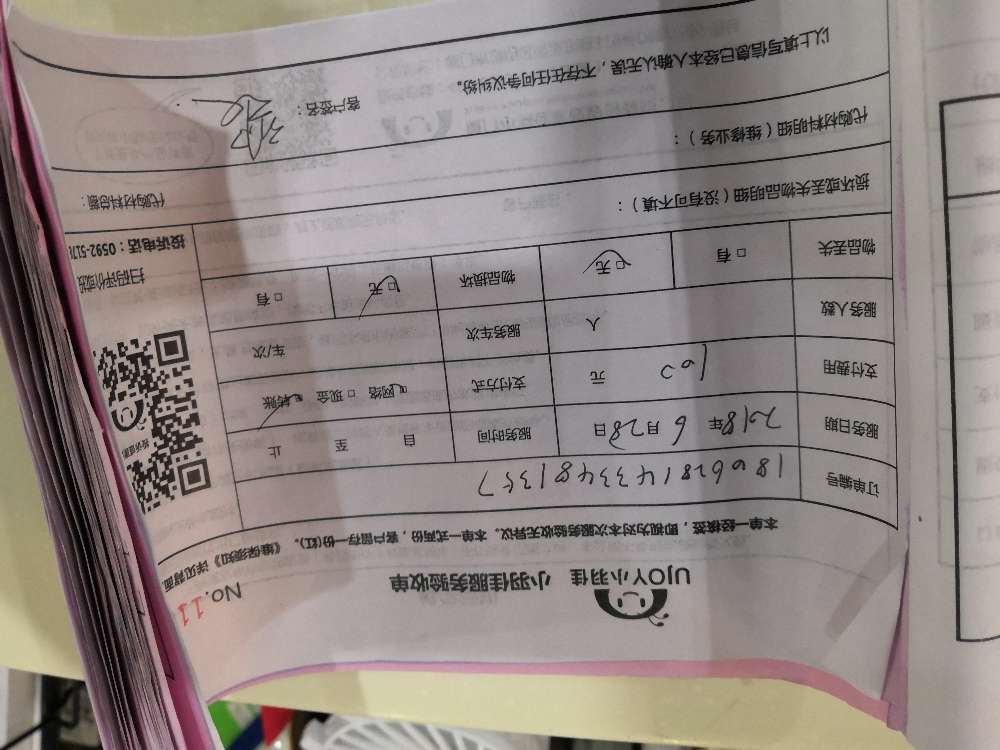 UJOY小羽佳 小羽佳服务验收单
No.11
本单一经核签,即视为对本次服务验收无异议。本单一式两份,客户留存一份(红)。《维保须知》详见背面
订单编号 180628143348 1357
服务日期 2018年 6月28日 服务时间 自 至 止
支付费用 100 元 支付方式 □网络 □现金 □转账
服务人数 人 服务车次 车/次
物品丢失 □有 □无 物品损坏 □无 □有
损坏或丢失物品明细(没有可不填):
代购材料明细(维修业务): 代购材料总额:
以上填写信息已经本人确认无误,不存在任何争议纠纷。 客户签名:
扫码评价
投诉电话:0592-517